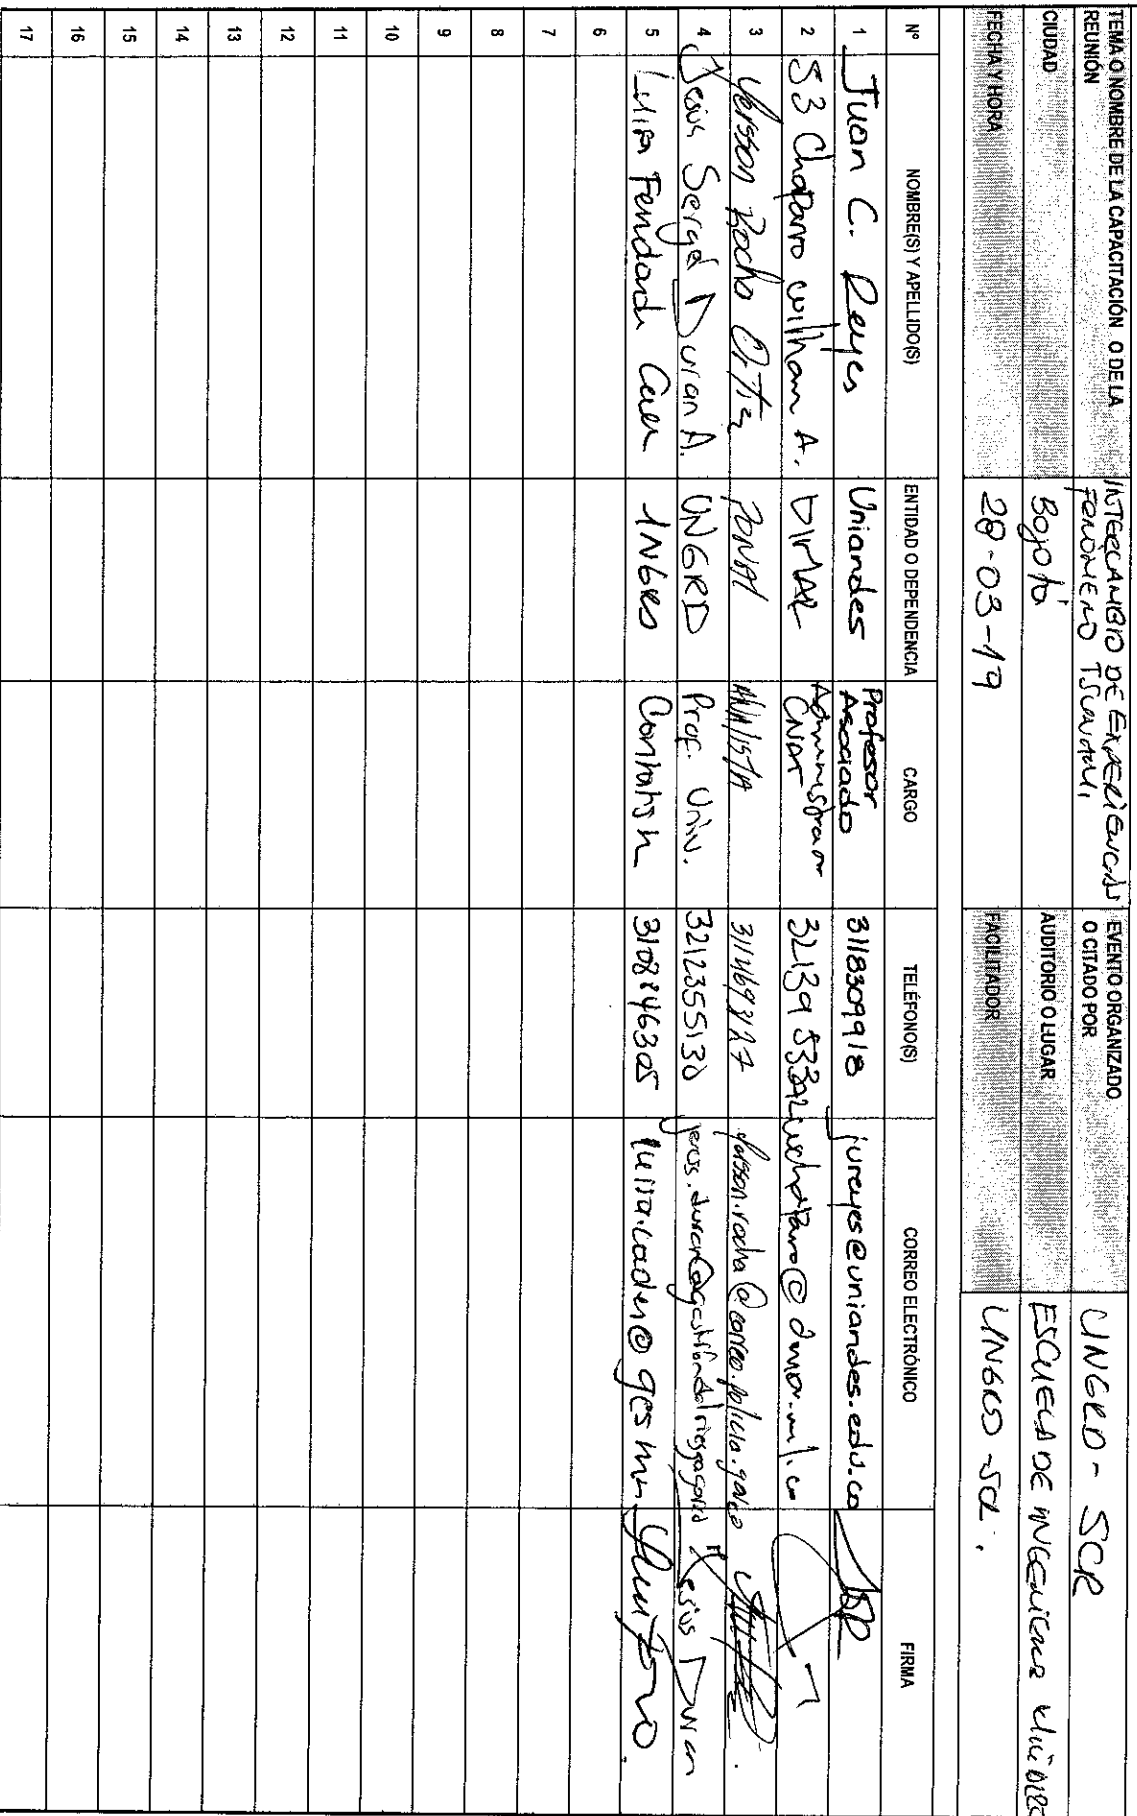 TEMA O NOMBRE DE LA CAPACITACIÓN O DE LA REUNIÓN
INTERCAMBIO DE EXPERIENCIAS FENÓMENO TSUNAMI
EVENTO ORGANIZADO O CITADO POR
UNGRD - SCR
CIUDAD
Bogotá
AUDITORIO O LUGAR
ESCUELA DE INGENIEROS
FECHA Y HORA
28-03-19
FACILITADOR
UNGRD - SCR.
Nº NOMBRE(S) Y APELLIDO(S) ENTIDAD O DEPENDENCIA CARGO TELÉFONO(S) CORREO ELECTRÓNICO FIRMA
1 Juan C. Reyes Uniandes Profesor Asociado 3118309918 jureyes@uniandes.edu.co
2 S3 Chaparro William A. DIMAR Administrador CNAT 
3 Yersson Rocha Ortiz PONAL ANALISTA yersson.rocha@correo.policia.gov.co
4 Jesus Sergei Duran A. UNGRD Prof. Univ. 3212355130 Jesus Duran
5 UNGRD Contratista 3108846305
6
7
8
9
10
11
12
13
14
15
16
17